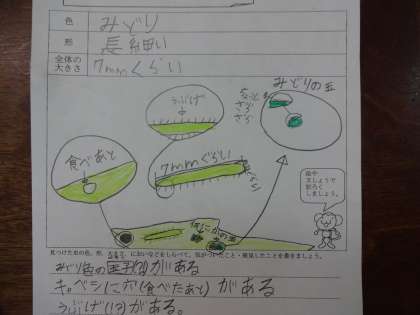 色 みどり
形 長細い
全体の大きさ 7mmくらい
みどりの玉
うぶげ
ちょっと
ざら
ざら
食べあと
7mmぐらい
絵や
文しょうで
記ろく
しましょう。
見つけた虫の色、形、においなどをしらべて、気がついたこと・発見したことを書きましょう。
みどり色の玉がある
キャベツに穴(食べたあと)がある
うぶげ(け)がある。